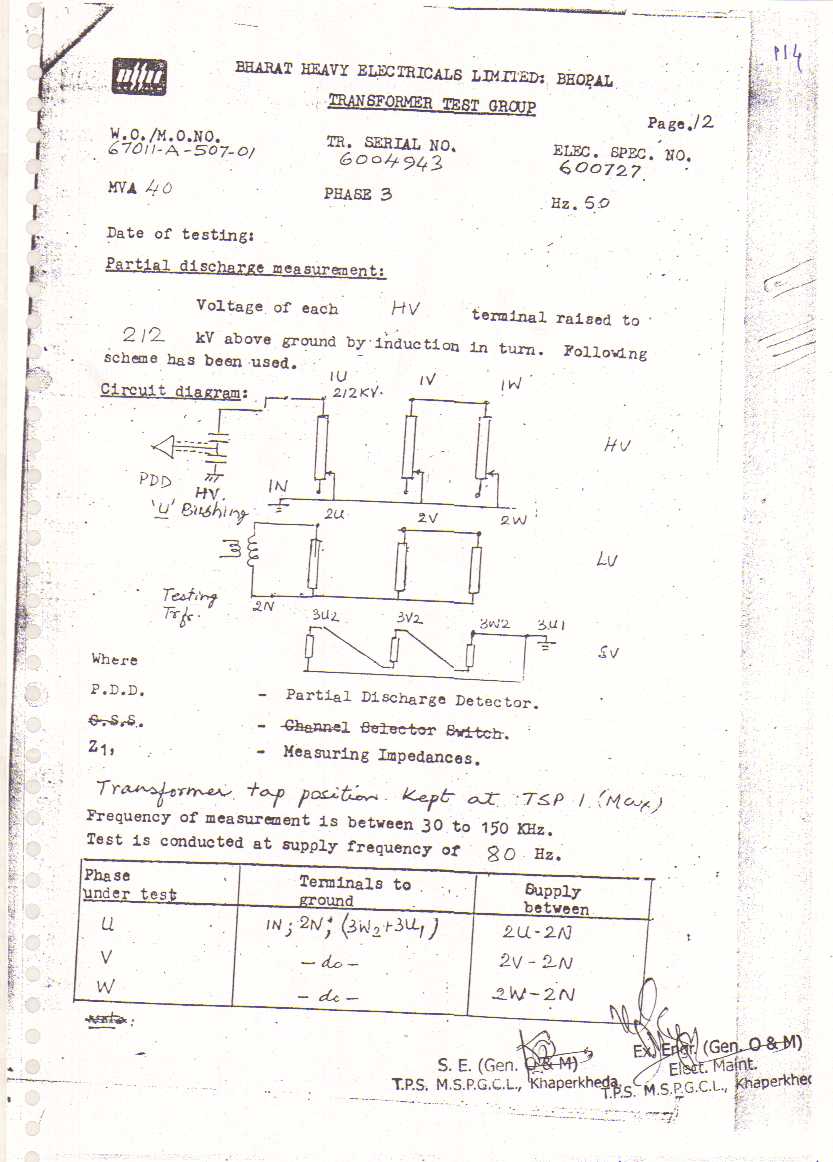 P14
BHARAT HEAVY ELECTRICALS LIMITED: BHOPAL
TRANSFORMER TEST GROUP
Page./2
W.O./M.O.NO. TR. SERIAL NO. ELEC. SPEC. NO.
67011-A-507-01 6004943 600727
MVA 40 PHASE 3 Hz. 50
Date of testing:
Partial discharge measurement:
Voltage of each HV terminal raised to
212 kV above ground by induction in turn. Following
scheme has been used.
Circuit diagram:
1U 1V 1W
212KV.
HV
PDD
HV.
'U' Bushing
1N
2U 2V 2W
LV
Testing
Trfr.
2N
3U2 3V2 3W2 3U1
SV
Where
P.D.D. - Partial Discharge Detector.
C.S.S. - Channel Selector Switch.
Z1, - Measuring Impedances.
Transformer tap position Kept at TSP 1 (Max)
Frequency of measurement is between 30 to 150 KHz.
Test is conducted at supply frequency of 80 Hz.
Phase under test | Terminals to ground | Supply between
U | 1N; 2N; (3W2+3U1) | 2U-2N
V | -do- | 2V-2N
W | -do- | 2W-2N
Note:
S. E. (Gen. O & M)
T.P.S. M.S.P.G.C.L., Khaperkheda.
Ex. Engr. (Gen. O & M)
Elect. Maint.
T.P.S. M.S.P.G.C.L., Khaperkhed